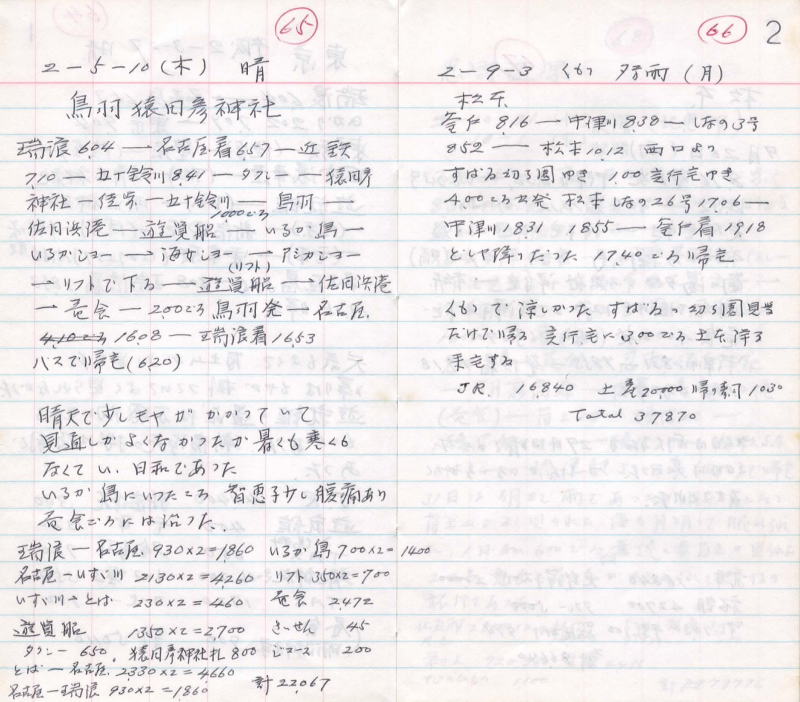 65
2-5-10(木) 晴
鳥羽 猿田彦神社
瑞浪 604 — 名古屋着 657 — 近鉄
710 — 五十鈴川 841 — タクシー — 猿田彦
神社 — 徒歩 — 五十鈴川 — 鳥羽 —
1000ごろ
佐田浜港 — 遊覧船 — いるか島 —
いるかショー → 海女ショー → アシカショー
(リフト)
→ リフトで下る → 遊覧船 → 佐田浜港
— 昼食 — 200ごろ 鳥羽発 — 名古屋
1608 — 瑞浪着 1653
バスで帰宅(620)
晴天で少しモヤが かかっていて
見通しがよくなかったが 暑くも寒くも
なくてい、日和であった
いるか島にいったころ 智恵子少し腹痛あり
昼食ごろには治った.
瑞浪 — 名古屋 930×2=1,860 いるか島 700×2=1400
名古屋 — いすゞ川 2130×2=4260 リフト 350×2=700
いすゞ川 — とば 230×2=460 昼食 2,472
遊覧船 1350×2=2,700 さいせん 45
タクシー 650. 猿田彦神社札 800 ジュース 200
とば — 名古屋 2330×2=4660
名古屋 — 瑞浪 930×2=1,860 計 22,067
66
2
2-9-3 くもり 夕雨 (月)
松本
釜戸 8.16 — 中津川 8.38 — しなの3号
852 — 松本 10.12 西口より
すばる 切る ゆき 1.00 宅ゆき
4.00ごろ発 松本 しなの26号 1706 —
中津川 1831 1855 — 釜戸着 1918
どしゃ降りだった 17.40ごろ帰宅
くもりで涼しかった すばる
だけで帰る 宅に 3.00ごろ
JR. 16,840 土産 20,000 1030
Total 37870